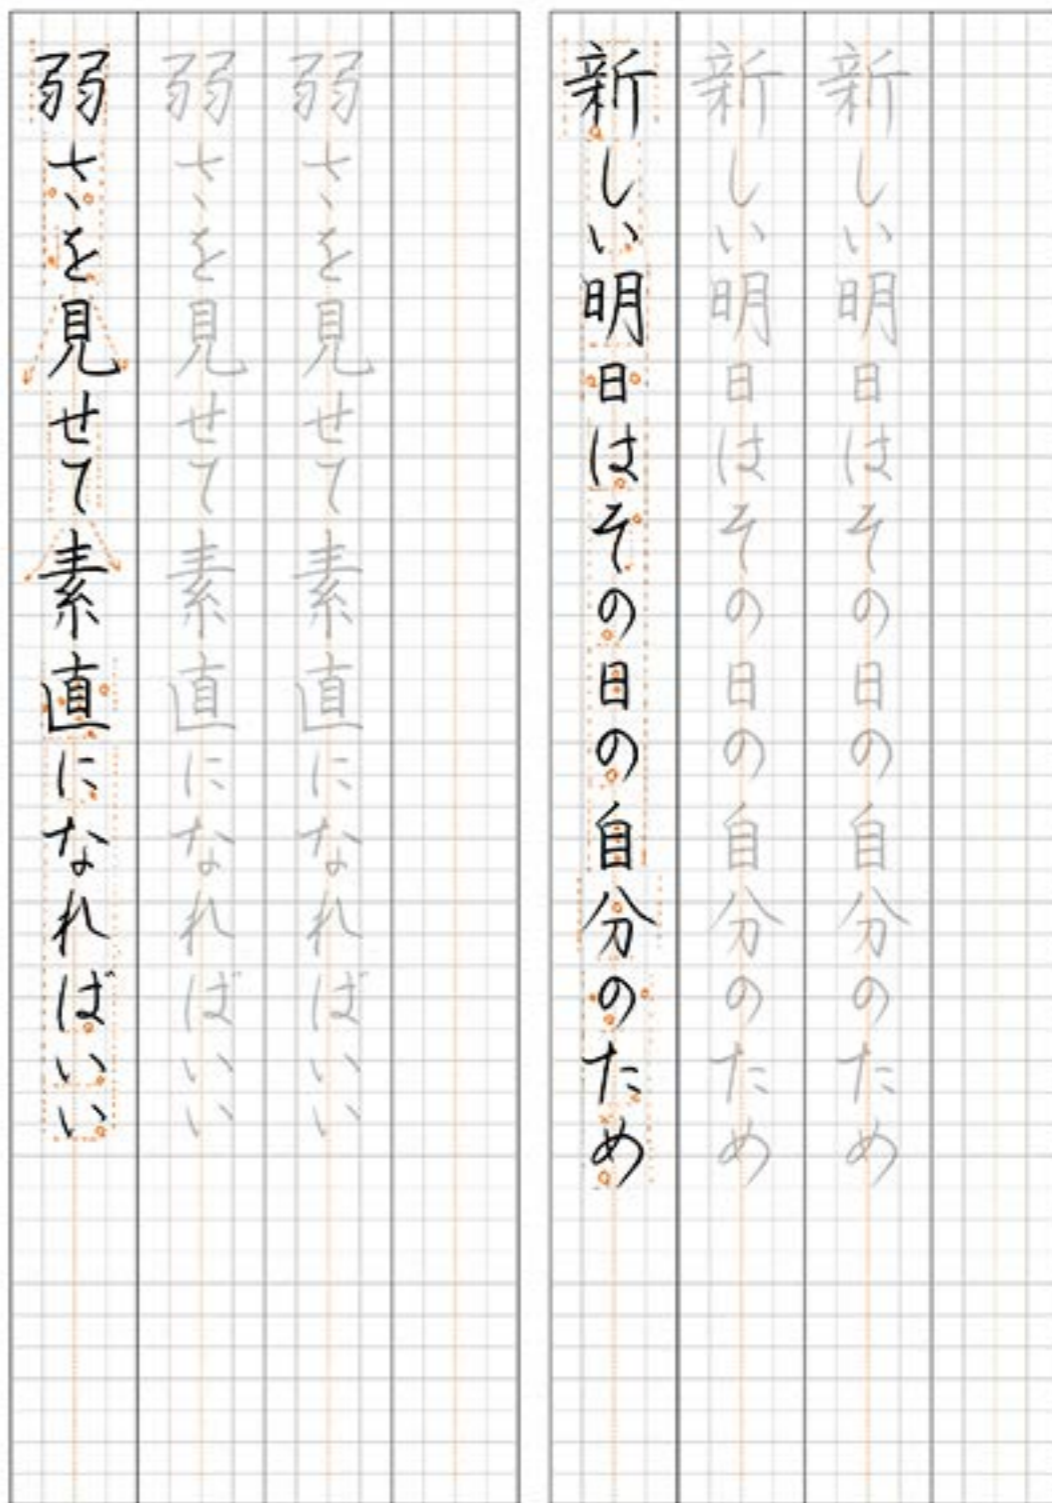 新しい明日はその日の自分のため
新しい明日はその日の自分のため
新しい明日はその日の自分のため
弱さを見せて素直になればいい
弱さを見せて素直になればいい
弱さを見せて素直になればいい